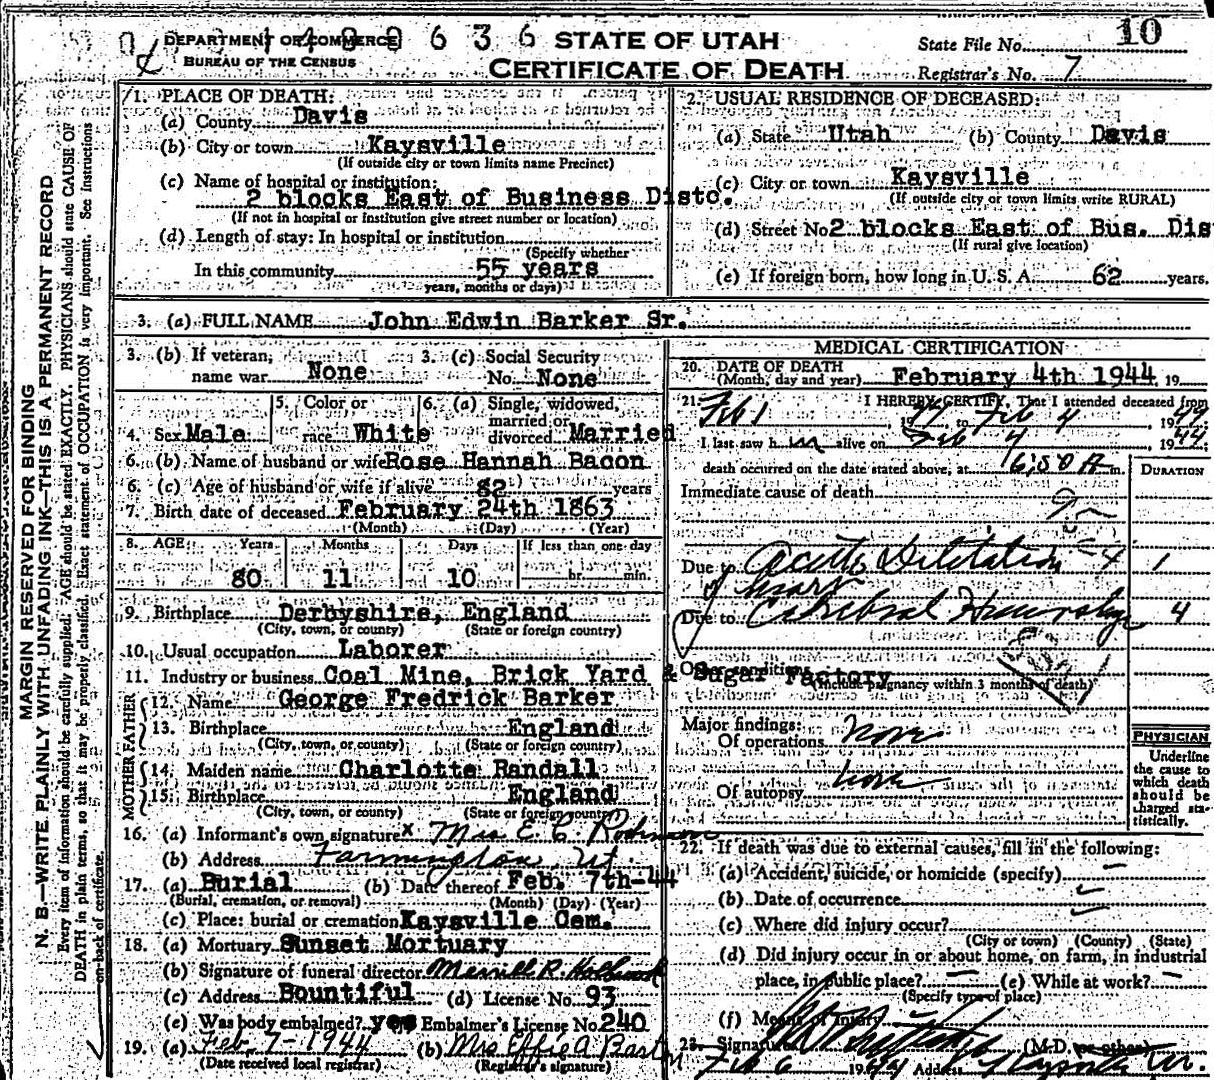 DEPARTMENT OF COMMERCE
BUREAU OF THE CENSUS
6 3 6
STATE OF UTAH
CERTIFICATE OF DEATH
State File No. 10
Registrar's No. 7
MARGIN RESERVED FOR BINDING
N. B.—WRITE PLAINLY WITH UNFADING INK—THIS IS A PERMANENT RECORD
Every item of information should be carefully supplied. AGE should be stated EXACTLY. PHYSICIANS should state CAUSE OF
DEATH in plain terms, so that it may be properly classified. Exact statement of OCCUPATION is very important. See instructions
on back of certificate.
1. PLACE OF DEATH:
(a) County Davis
(b) City or town Kaysville
(If outside city or town limits name Precinct)
(c) Name of hospital or institution:
2 blocks East of Business Distc.
(If not in hospital or institution give street number or location)
(d) Length of stay: In hospital or institution
(Specify whether
In this community 55 years
years, months or days)
2. USUAL RESIDENCE OF DECEASED:
(a) State Utah (b) County Davis
(c) City or town Kaysville
(If outside city or town limits write RURAL)
(d) Street No. 2 blocks East of Bus. Dis
(If rural give location)
(e) If foreign born, how long in U. S. A. 62 years.
3. (a) FULL NAME John Edwin Barker Sr.
3. (b) If veteran, name war None
3. (c) Social Security No. None
4. Sex Male
5. Color or race White
6. (a) Single, widowed, married or divorced Married
6. (b) Name of husband or wife Rose Hannah Bacon
6. (c) Age of husband or wife if alive 82 years
7. Birth date of deceased February 24th 1863
(Month) (Day) (Year)
8. AGE: Years Months Days If less than one day
80 11 10 hr. min.
9. Birthplace Derbyshire, England
(City, town, or county) (State or foreign country)
10. Usual occupation Laborer
11. Industry or business Coal Mine, Brick Yard & Sugar Factory
FATHER
12. Name George Fredrick Barker
13. Birthplace England
(City, town, or county) (State or foreign country)
MOTHER
14. Maiden name Charlotte Randall
15. Birthplace England
(City, town, or county) (State or foreign country)
16. (a) Informant's own signature x Mrs E. C. Robinson
(b) Address Farmington, Ut
17. (a) Burial (b) Date thereof Feb. 7th-44
(Burial, cremation, or removal) (Month) (Day) (Year)
(c) Place: burial or cremation Kaysville Cem.
18. (a) Mortuary Sunset Mortuary
(b) Signature of funeral director Merrill R. Holbrook
(c) Address Bountiful (d) License No. 93
(e) Was body embalmed? yes Embalmer's License No. 240
19. (a) Feb. 7-1944 (b) Mrs Effie A Barton
(Date received local registrar) (Registrar's signature)
MEDICAL CERTIFICATION
20. DATE OF DEATH
(Month, day and year) February 4th 1944, 19
21. I HEREBY CERTIFY, That I attended deceased from
Feb 1, 1944 to Feb 4, 1944
I last saw him alive on Feb 4 1944
death occurred on the date stated above, at 6:50 A m.
DURATION
Immediate cause of death
Due to Acute Dilitation 1
of heart
Due to Cerebral 4
Other conditions
(Include pregnancy within 3 months of death)
Major findings:
Of operations None
Of autopsy None
PHYSICIAN
Underline
the cause to
which death
should be
charged sta-
tistically.
22. If death was due to external causes, fill in the following:
(a) Accident, suicide, or homicide (specify)
(b) Date of occurrence
(c) Where did injury occur?
(City or town) (County) (State)
(d) Did injury occur in or about home, on farm, in industrial
place, in public place? (e) While at work?
(Specify type of place)
(f) Means of injury
23. Signature (M.D. or other)
Feb 6 1944 Address Kaysville Ut.